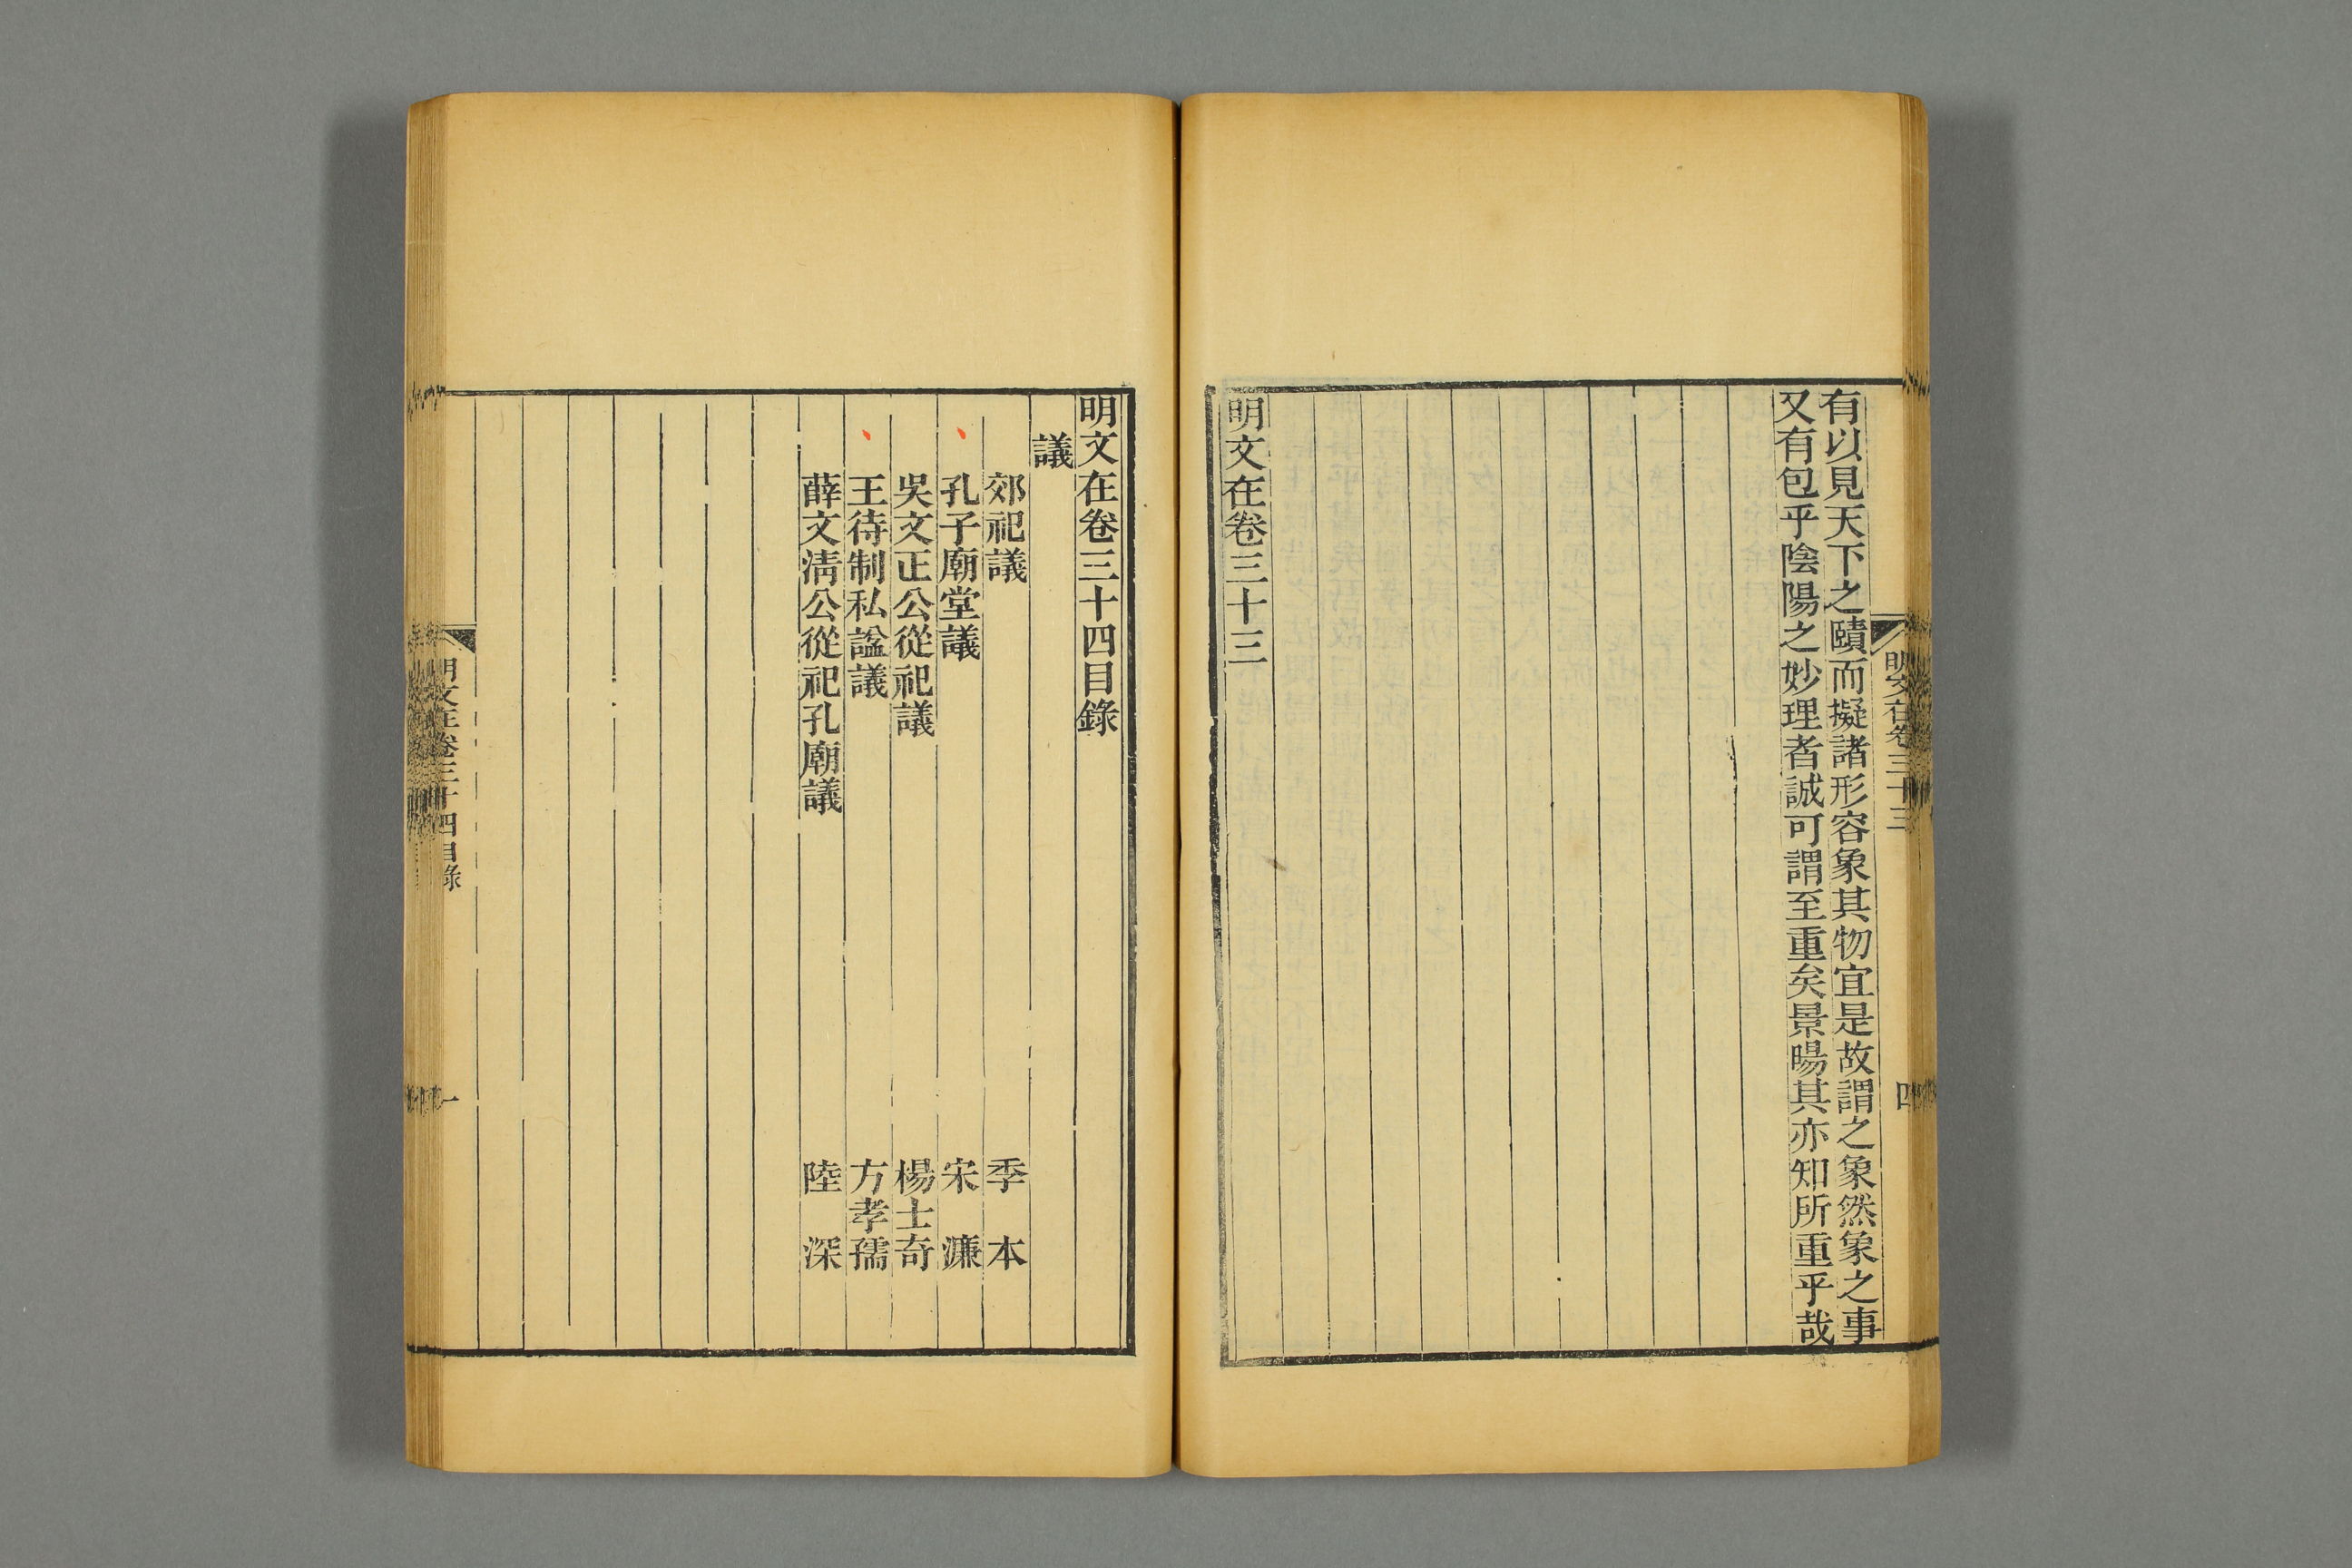 有以見天下之賾而擬諸形容象其物宜是故謂之象然象之事
又有包乎陰陽之妙理者誠可謂至重矣景暘其亦知所重乎哉
明文在卷三十三
明文在卷三十三
四
明文在卷三十四目錄
議
郊祀議 季本
孔子廟堂議 宋濂
吳文正公從祀議 楊士奇
王待制私諡議 方孝孺
薛文淸公從祀孔廟議 陸深
明文在卷三十四目錄
一